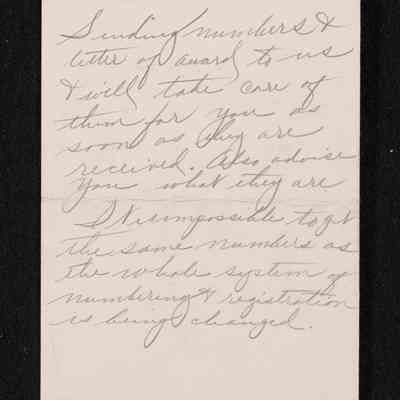 Sending numbers &
letter of award to us
& will take care of
them for you as
soon as they are
received. Also advise
you what they are
It is impossible to get
the same numbers as
the whole system of
numbering & registration
is being changed.